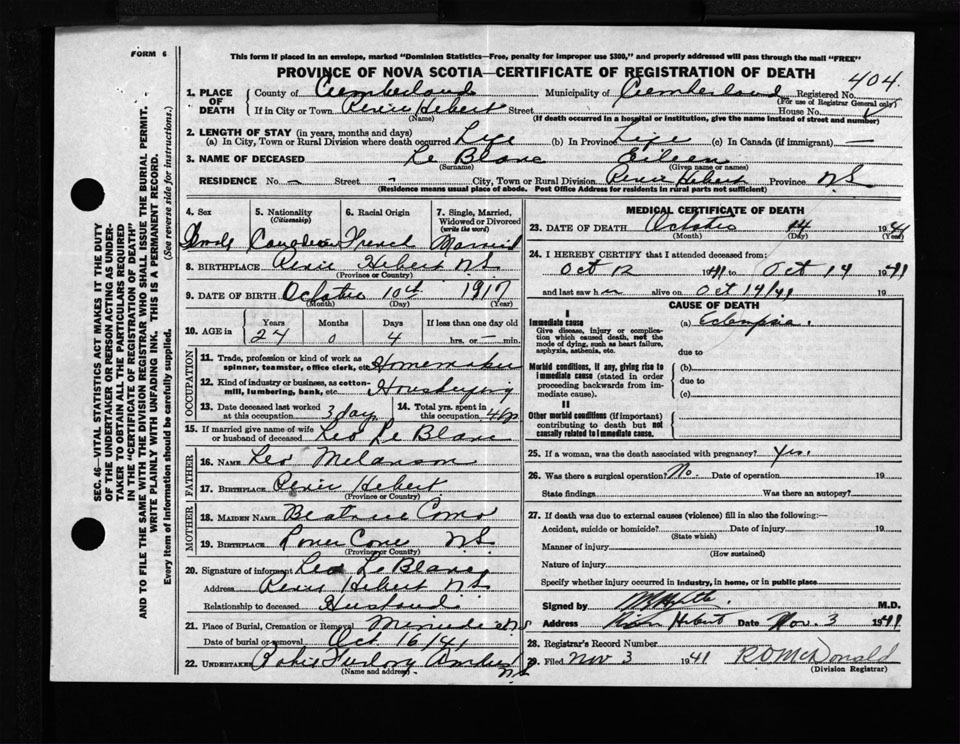 FORM 6
This form if placed in an envelope, marked "Dominion Statistics—Free, penalty for improper use $300," and properly addressed will pass through the mail "FREE"
PROVINCE OF NOVA SCOTIA—CERTIFICATE OF REGISTRATION OF DEATH
404.
1. PLACE OF DEATH
County of Cumberland Municipality of Cumberland Registered No.
(For use of Registrar General only)
If in City or Town River Hebert Street House No.
(Name) (If death occurred in a hospital or institution, give the name instead of street and number)
2. LENGTH OF STAY (in years, months and days)
(a) In City, Town or Rural Division where death occurred Life (b) In Province Life (c) In Canada (if immigrant) —
3. NAME OF DECEASED Le Blanc Eileen
(Surname) (Given name or names)
RESIDENCE No. — Street - City, Town or Rural Division River Hebert Province N.S.
(Residence means usual place of abode. Post Office Address for residents in rural parts not sufficient)
4. Sex 5. Nationality (Citizenship) 6. Racial Origin 7. Single, Married, Widowed or Divorced (write the word)
Female Canadian French Married
8. BIRTHPLACE River Hebert N.S.
(Province or Country)
9. DATE OF BIRTH October 10th 1917
(Month) (Day) (Year)
10. AGE in Years Months Days If less than one day old
24 0 4 hrs. or — min.
OCCUPATION
11. Trade, profession or kind of work as spinner, teamster, office clerk, etc. Homemaker
12. Kind of industry or business, as cotton-mill, lumbering, bank, etc. Housekeeping
13. Date deceased last worked at this occupation 3 days 14. Total yrs. spent in this occupation
15. If married give name of wife or husband of deceased Leo Le Blanc
FATHER
16. NAME Leo Melanson
17. BIRTHPLACE River Hebert
(Province or Country)
MOTHER
18. MAIDEN NAME Beatrice
19. BIRTHPLACE Cove N.S.
(Province or Country)
20. Signature of informant Leo Le Blanc
Address River Hebert N.S.
Relationship to deceased Husband
21. Place of Burial, Cremation or Removal
Date of burial or removal Oct 16/41
22. UNDERTAKER Furlong Amherst N.S.
(Name and address)
MEDICAL CERTIFICATE OF DEATH
23. DATE OF DEATH October 14 1941
(Month) (Day) (Year)
24. I HEREBY CERTIFY that I attended deceased from:
Oct 12 1941 to Oct 14 1941
and last saw h er alive on Oct 14/41 19
CAUSE OF DEATH
I
Immediate cause (a) Eclampsia.
Give disease, injury or complication which caused death, not the mode of dying, such as heart failure, asphyxia, asthenia, etc.
due to
Morbid conditions, if any, giving rise to immediate cause (stated in order proceeding backwards from immediate cause). (b)
due to
(c)
II
Other morbid conditions (if important) contributing to death but not causally related to immediate cause.
25. If a woman, was the death associated with pregnancy? Yes.
26. Was there a surgical operation? No. Date of operation 19
State findings Was there an autopsy?
27. If death was due to external causes (violence) fill in also the following:—
Accident, suicide or homicide? Date of injury 19
(State which)
Manner of injury
(How sustained)
Nature of injury
Specify whether injury occurred in industry, in home, or in public place
Signed by M.D.
Address River Hebert Date Nov. 3 1941
28. Registrar's Record Number
29. Filed Nov 3 1941 R D McDonald
(Division Registrar)
SEC. 46—VITAL STATISTICS ACT MAKES IT THE DUTY
OF THE UNDERTAKER OR PERSON ACTING AS UNDER-
TAKER TO OBTAIN ALL THE PARTICULARS REQUIRED
IN THE "CERTIFICATE OF REGISTRATION OF DEATH"
AND TO FILE THE SAME WITH THE DIVISION REGISTRAR WHO SHALL ISSUE THE BURIAL PERMIT.
WRITE PLAINLY WITH UNFADING INK. THIS IS A PERMANENT RECORD.
Every item of information should be carefully supplied. (See reverse side for instructions.)